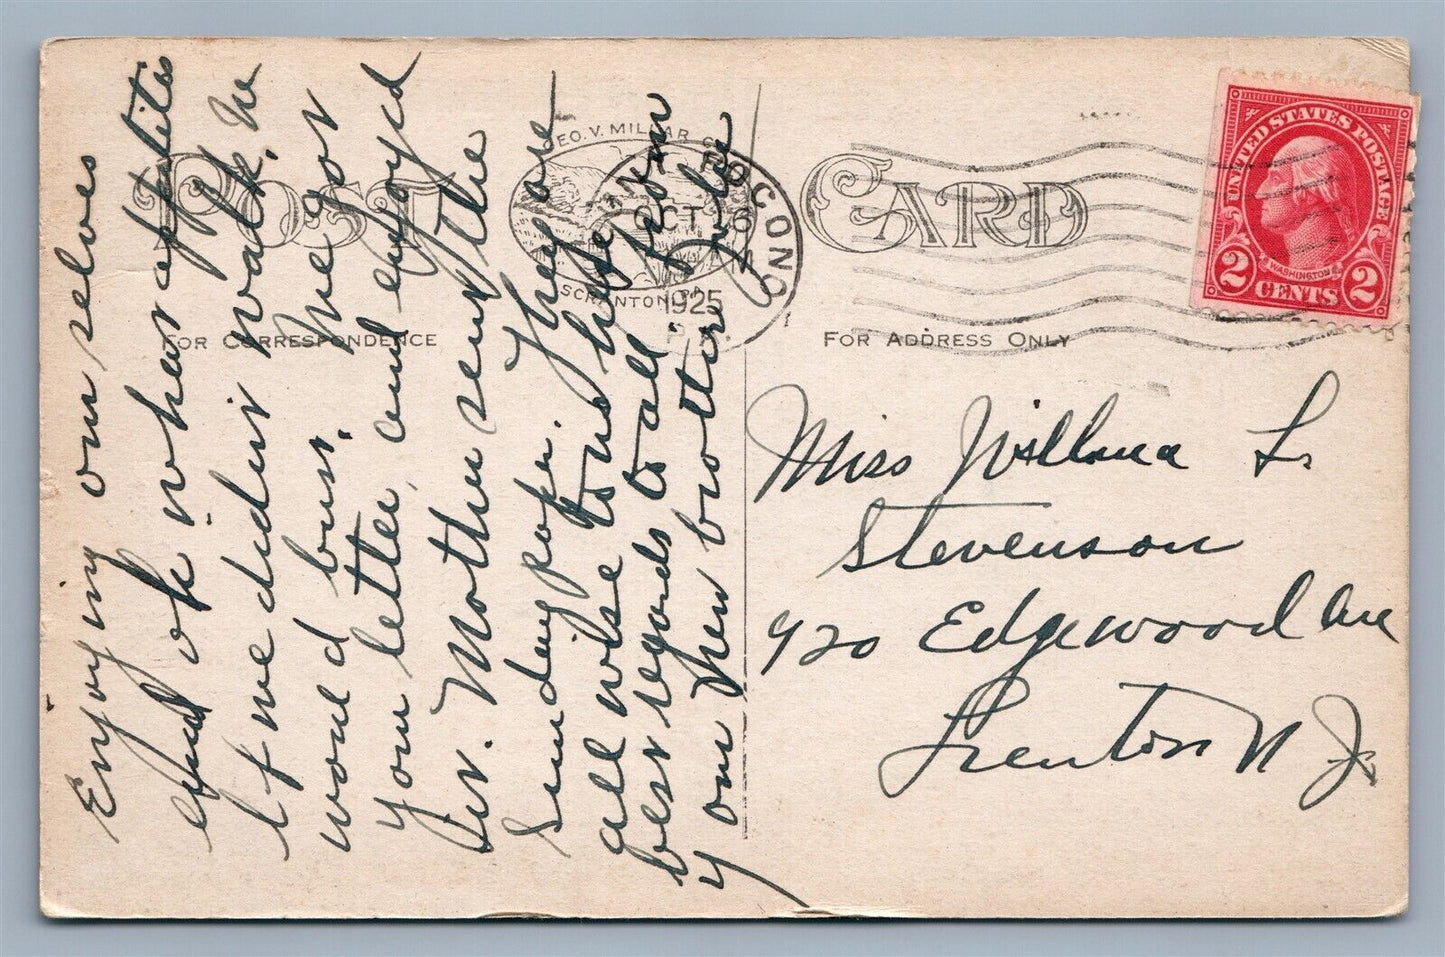 Enjoying our selves
and oh what appetites
If we didn't walk. We
would bust. We got
your letter, and enjoyed
it. Mother sent the
Sunday paper. They are
all wise to us here
best regards to all from
your new brother
POST CARD
GEO. V. MILLAR &
SCRANTON, PA.
POCONO
OCT 6
1925
PA.
FOR CORRESPONDENCE
FOR ADDRESS ONLY
UNITED STATES POSTAGE
WASHINGTON
2 CENTS 2
Miss Willma L.
Stevenson
920 Edgewood Ave
Trenton N J.